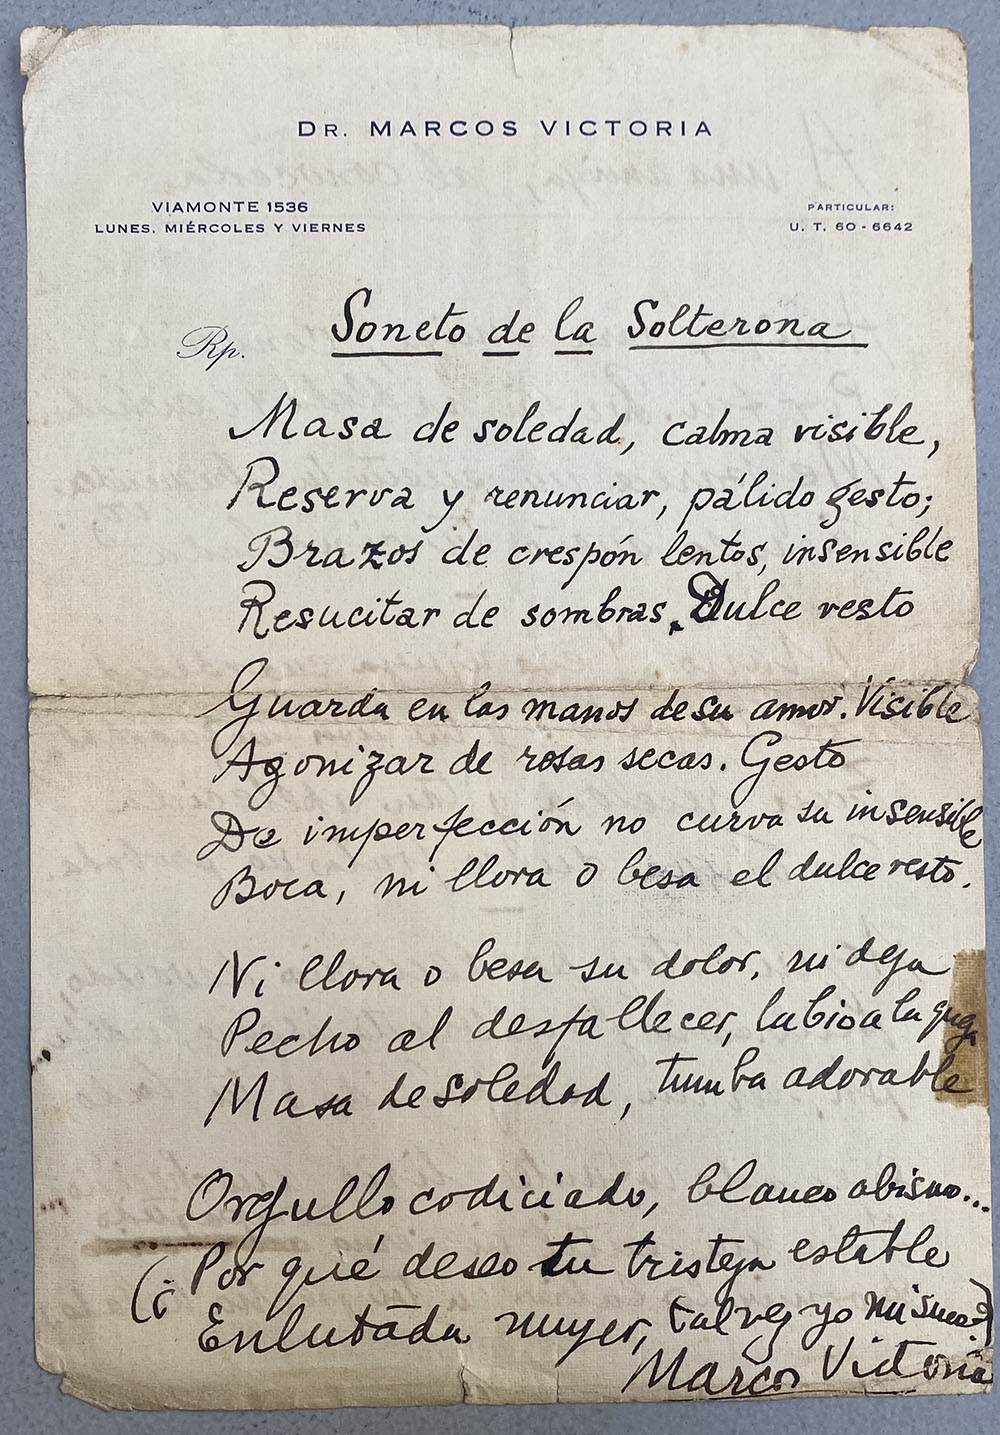 DR. MARCOS VICTORIA
VIAMONTE 1536
LUNES, MIÉRCOLES Y VIERNES
PARTICULAR:
U. T. 60 - 6642
Rp.
Soneto de la Solterona
Masa de soledad, calma visible,
Reserva y renunciar, pálido gesto;
Brazos de crespón lentos, insensible
Resucitar de sombras. Dulce resto
Guarda en las manos de su amor. Visible
Agonizar de rosas secas. Gesto
De imperfección no curva su insensible
Boca, ni llora o besa el dulce resto.
Ni llora o besa su dolor, ni deja
Pecho al desfallecer, labio a la queja
Masa de soledad, tumba adorable
Orgullo codiciado, blanco abismo...
(¿Por qué deseo tu tristeza estable
Enlutada mujer, tal vez yo mismo?)
Marcos Victoria